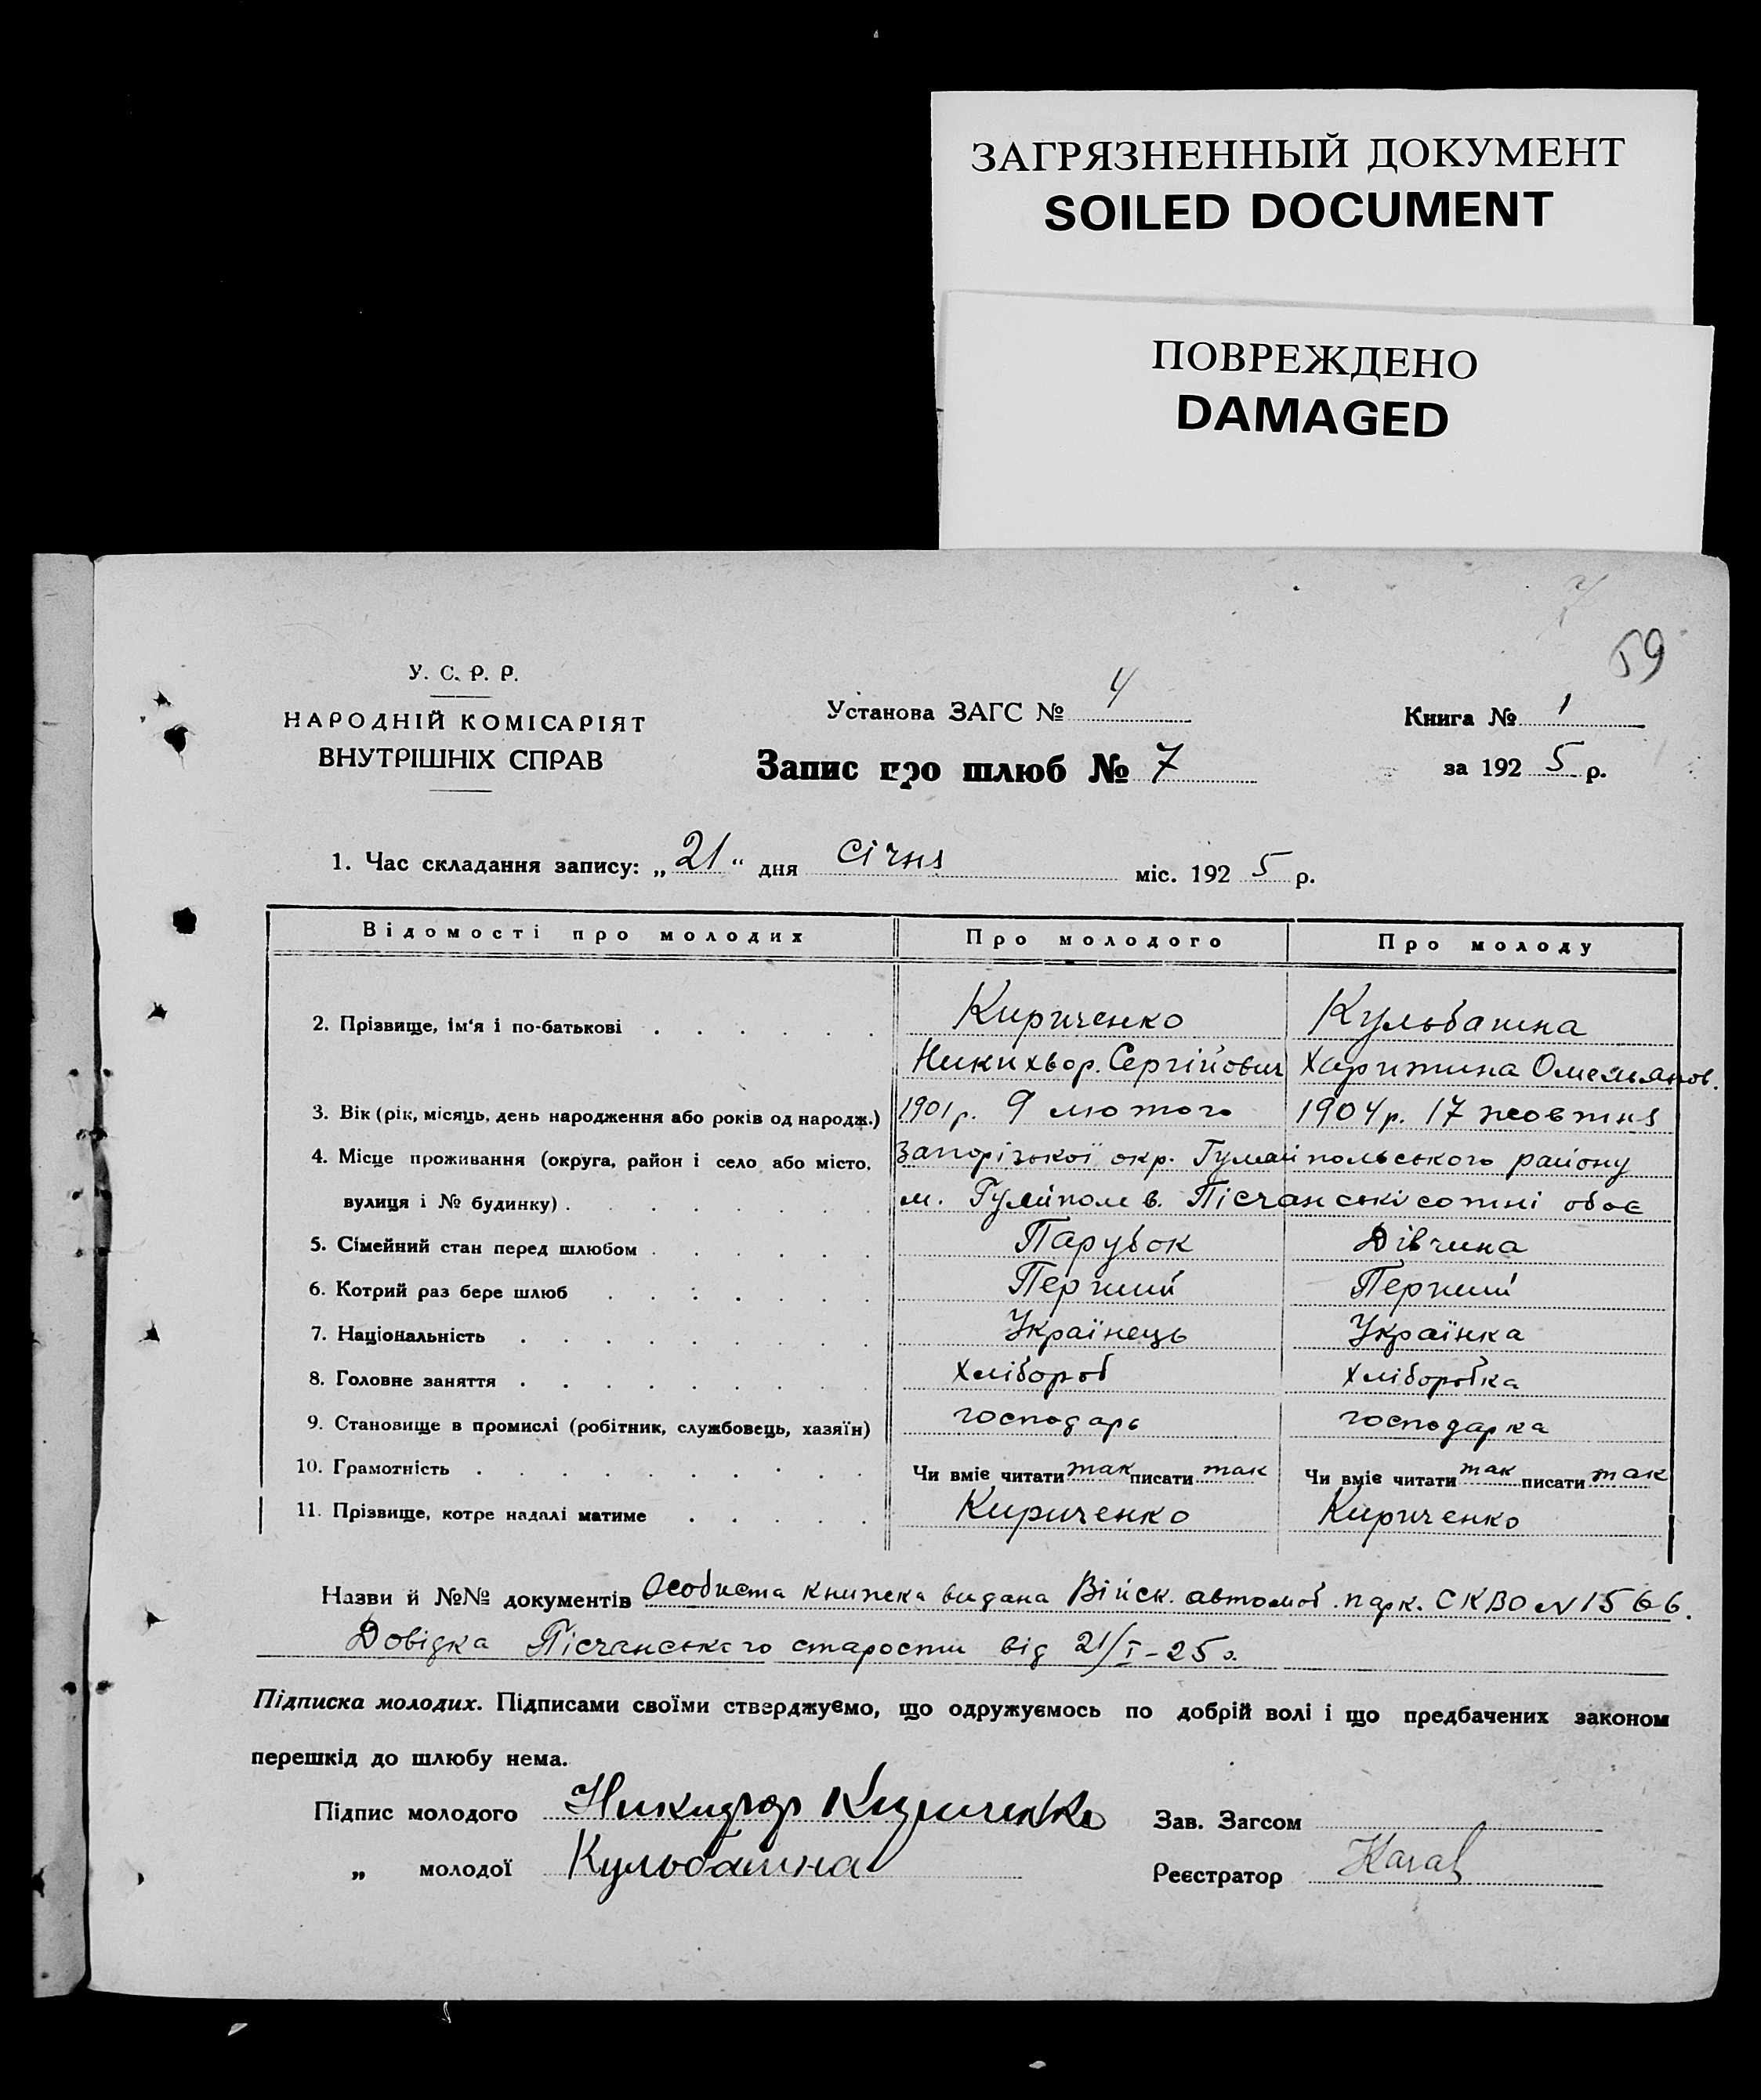 ЗАГРЯЗНЕННЫЙ ДОКУМЕНТ
SOILED DOCUMENT
ПОВРЕЖДЕНО
DAMAGED
59
У. С. Р. Р.
НАРОДНІЙ КОМІСАРІЯТ
ВНУТРІШНІХ СПРАВ
Установа ЗАГС № 4
Запис про шлюб № 7
Книга № 1
за 1925 р.
1. Час складання запису: „21“ дня січня міс. 1925 р.
Відомості про молодих Про молодого Про молоду
2. Прізвище, ім'я і по-батькові Кириченко Кульбашна
Никихвор. Сергійович Харитина Омельянов.
3. Вік (рік, місяць, день народження або років од народж.) 1901 р. 9 лютого 1904 р. 17 жовтня
4. Місце проживання (округа, район і село або місто, Запорізької окр. Гуляйпольського району
вулиця і № будинку) м. Гуляйполе в. Пісчанські сотні обоє
5. Сімейний стан перед шлюбом Парубок Дівчина
6. Котрий раз бере шлюб Перший Перший
7. Національність Українець Українка
8. Головне заняття Хлібороб Хліборобка
9. Становище в промислі (робітник, службовець, хазяїн) господарь господарка
10. Грамотність Чи вміє читати так писати так Чи вміє читати так писати так
11. Прізвище, котре надалі матиме Кириченко Кириченко
Назви й №№ документів Особиста книжка видана Військ. автомоб. парк. СКВО N 1566.
Довідка Пісчанського старости від 21/I-25 р.
Підписка молодих. Підписами своїми стверджуємо, що одружуємось по добрій волі і що предбачених законом
перешкід до шлюбу нема.
Підпис молодого Никифор Кириченко
Зав. Загсом
„ молодої Кульбашна
Реєстратор